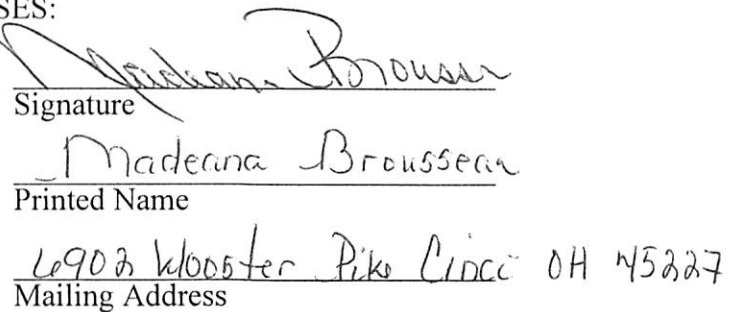 SES:
Madeana Brousse
Signature
Madeana Brousseau
Printed Name
6902 Wooster Pike Cinci OH 45227
Mailing Address